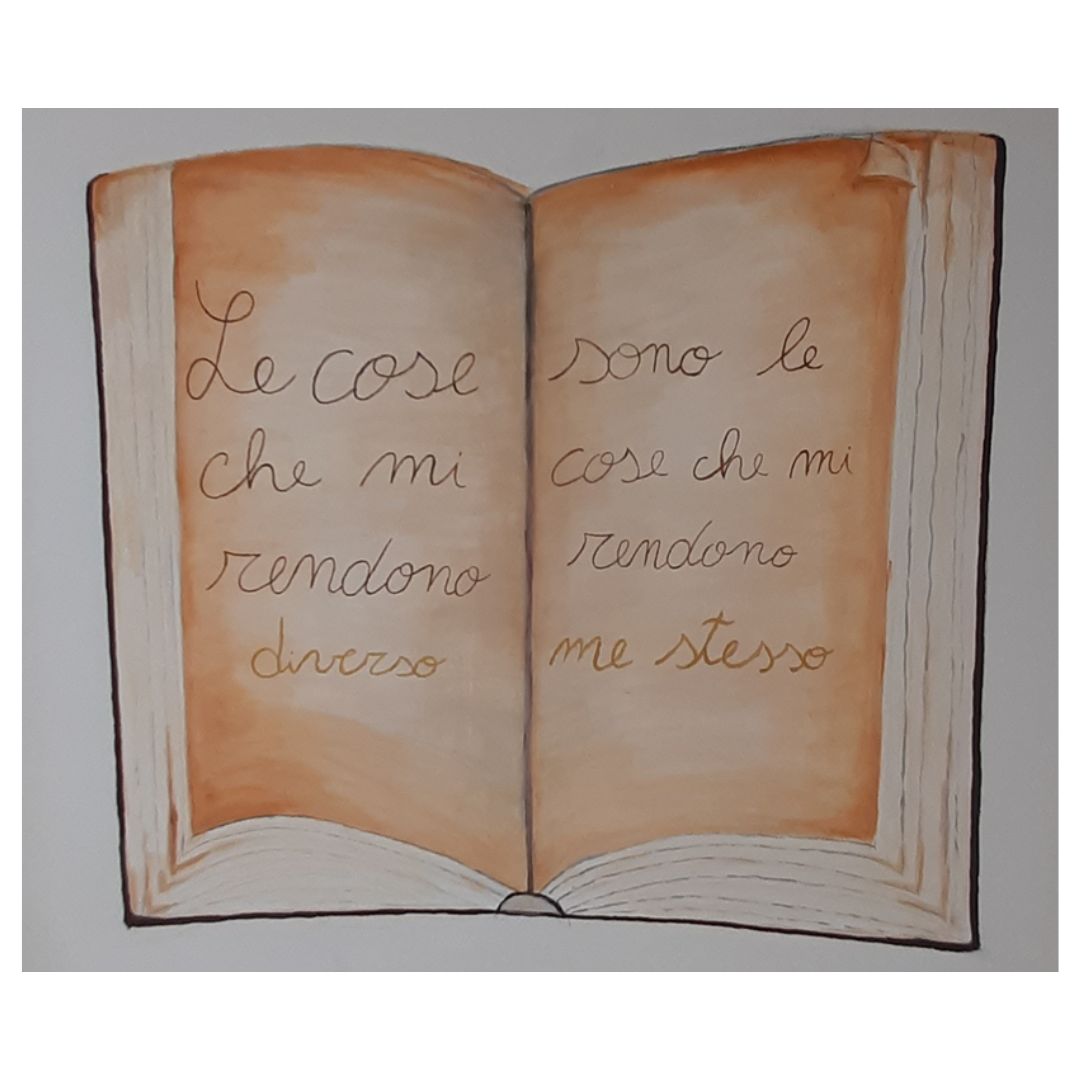 Le cose
che mi
rendono
diverso
sono le
cose che mi
rendono
me stesso